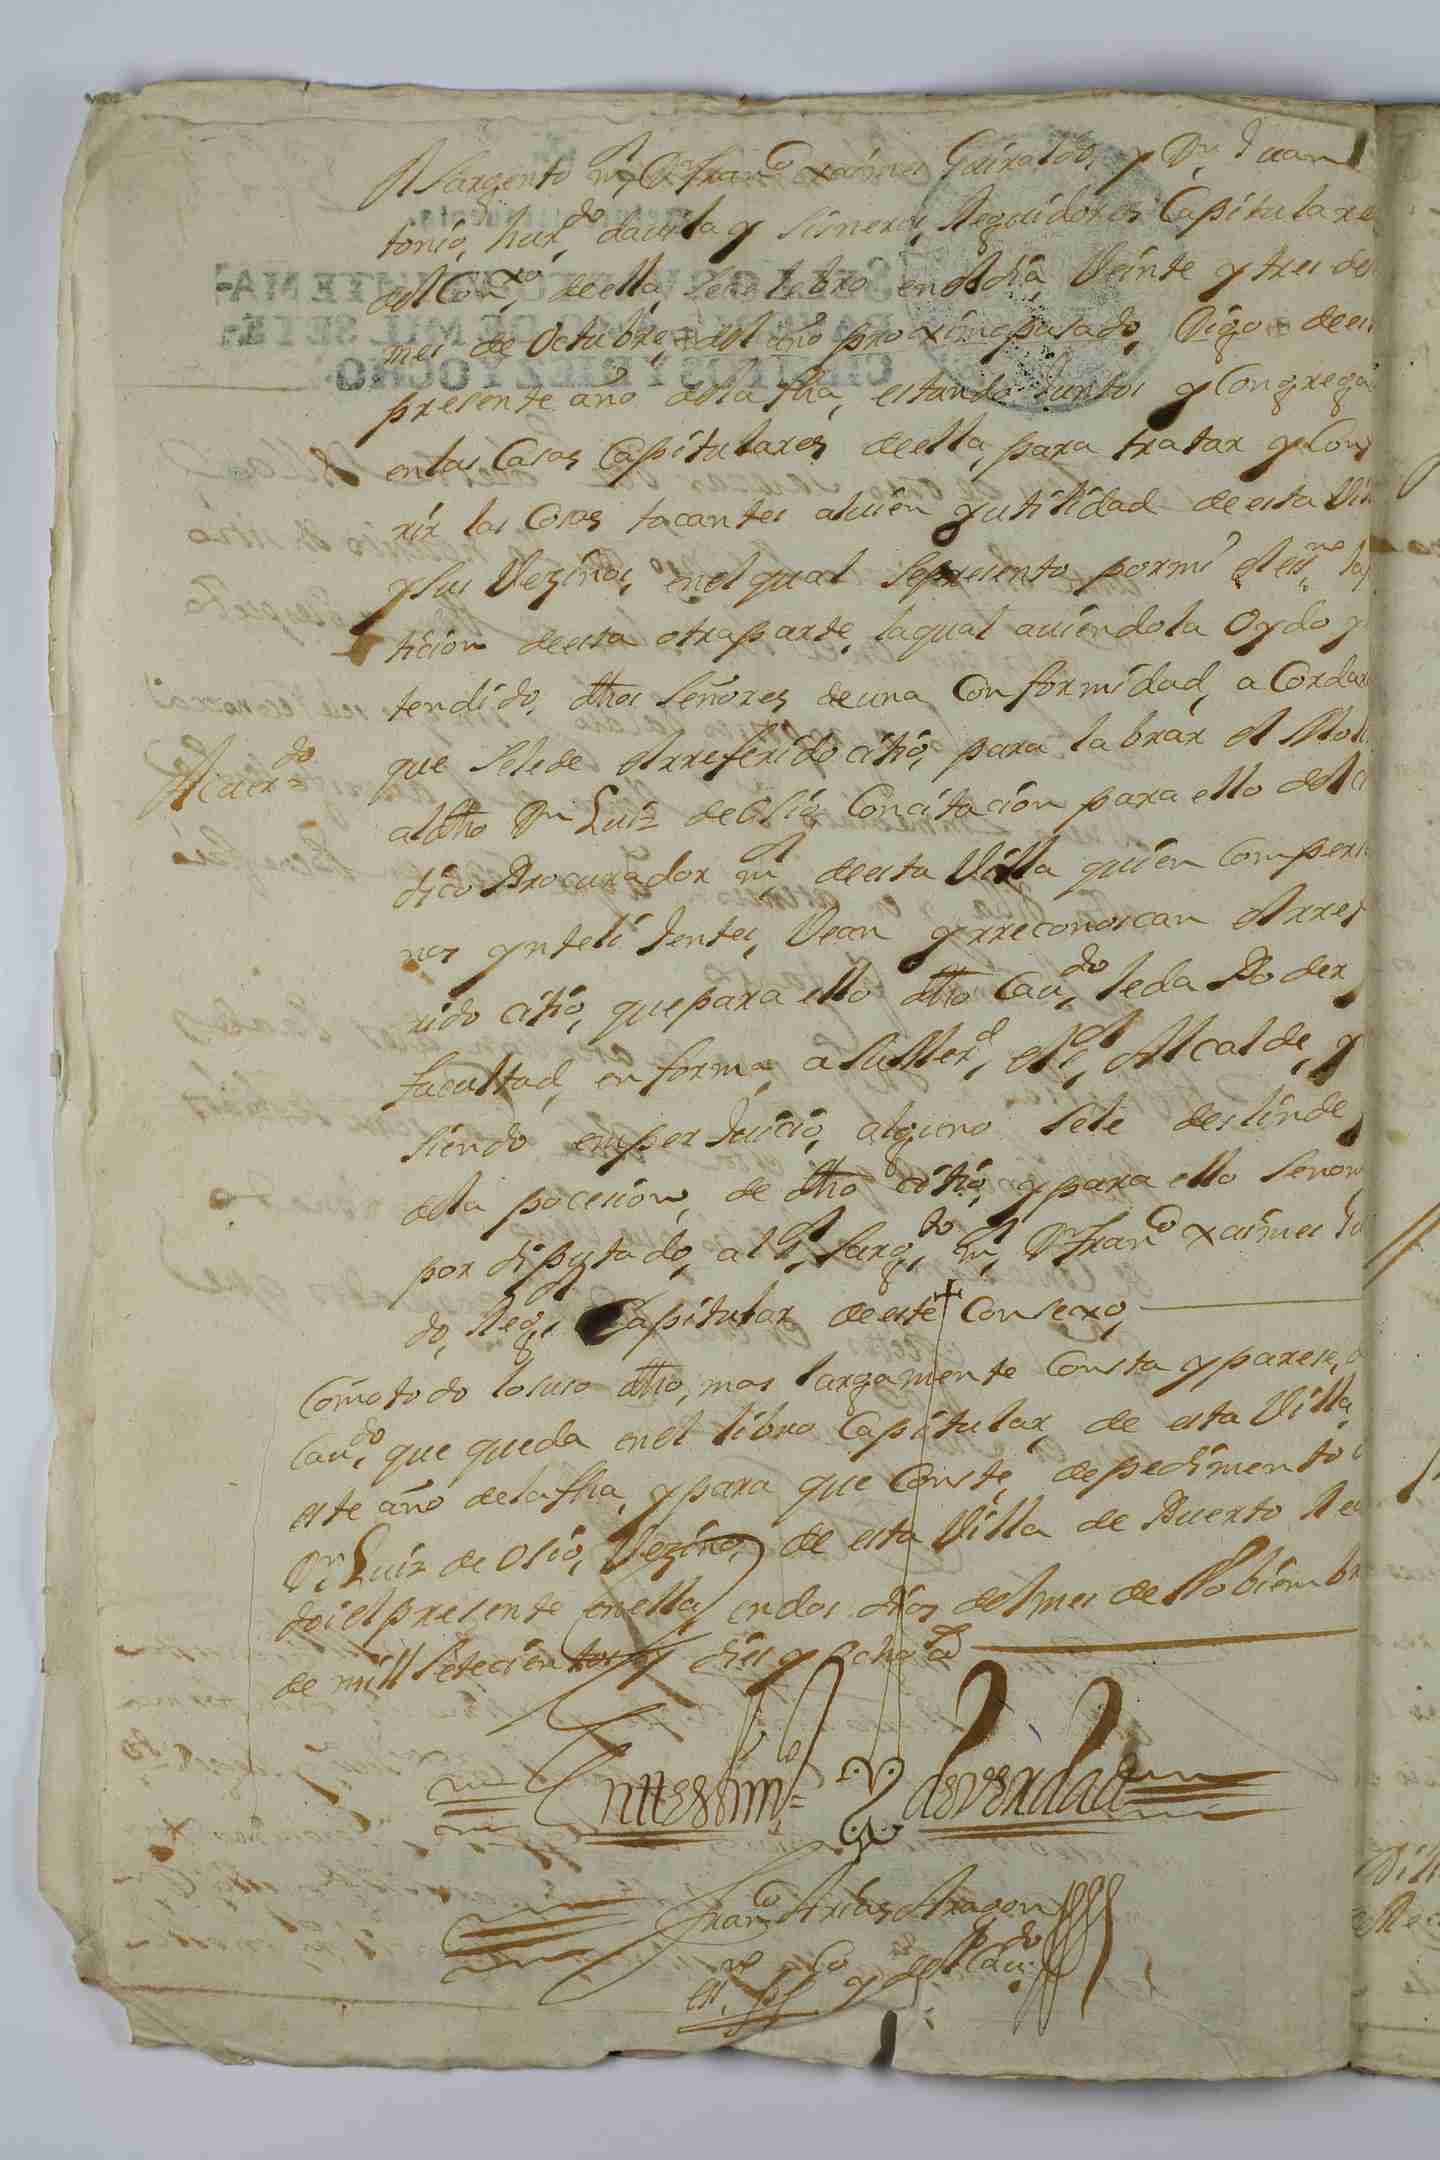 el Sargento mr Dn Franco xaimes Guiraldes y Dn Juan
tonio, hurdo, davila y sisneros, Regidores Capitulare
del Conxo, de ella, se selebro en el dia, Veinte y tres del
mes de Octubre, del año proximo pasado, Digo de es
presente año de la fha, estando juntos y Congrega
en las Casas Capitulares de ella, para tratar y Con
rir las Cosas tocantes al uien y utilidad de esta Vi
y sus Vezinos, en el qual se presento por mi el essno la
tision de esta otra parte, la qual auiendola Oydo y
tendido, dhos Señores de una Conformidad, a Cordar
que se le de el rreferido citio, para la brar el Moli
Acuerdo
al dho Dn Luiz de Osio, Con citacion para ello del
dico Procurador ml de esta Villa quien Com perso
nas yntelijentes, Vean y rreconoscan el rrefe
rido citio, que para ello dho Caudo, le da Poder y
facultad, en forma, a su Merd, el sl Alcalde, y
siendo sin perjuicio, alguno se le deslinde y
de la pocesion, de dho citio, y para ello se nom
por diputado, al sl Sargto ml, Dn Franco xaimes Gi
do, Regl Capitular de este Consexo,
Como todo lo suso dho, mas largamente Consta y parese,
Caudo, que queda en el libro Capitular, de esta Villa,
este año de la fha, y para que Conste, de pedimento
Dn Luiz de Osio, Vezino, de esta Villa de Puerto Rea
doi el presente en ella, en dos dias del mes de Nobiembr
de mill setecientos y dies y ocho as
En testimo = de verdad
Franco Arias Aragon
essno pco y del Caudo